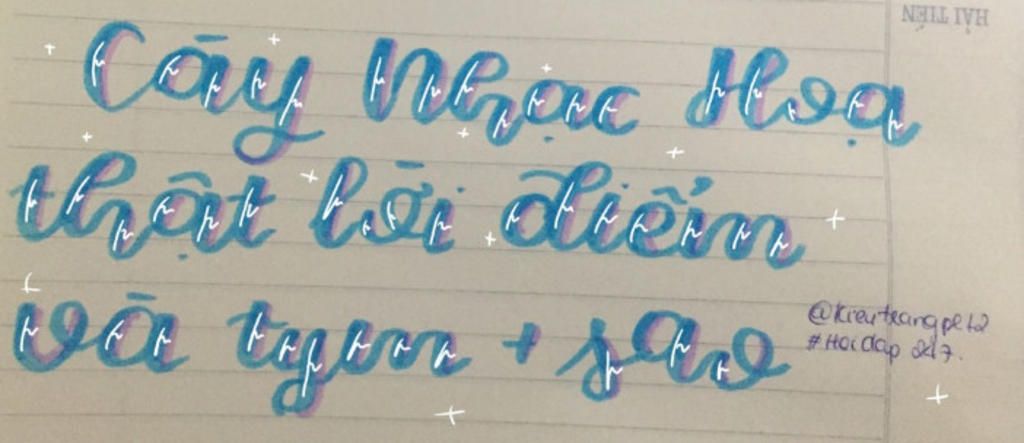 HẢI TIẾN
Cày Nhạc Hoạ
thật lời điểm
và tym + sao
@kieutrangpct2
#Hoidap247.